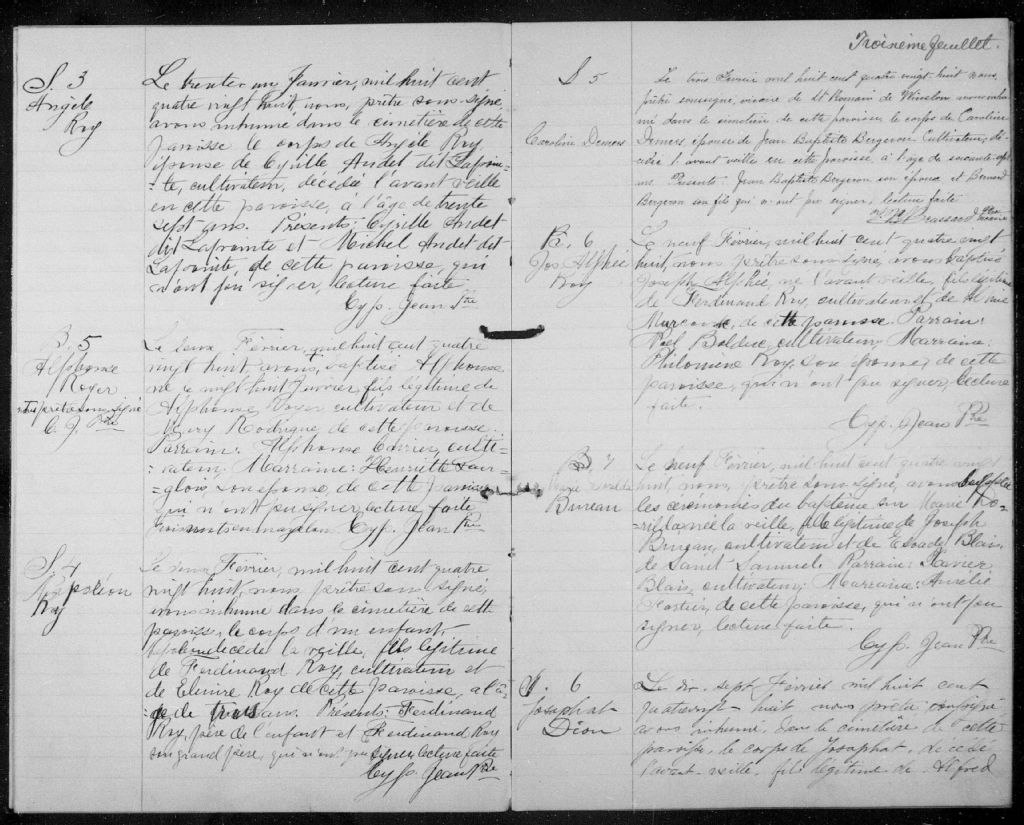 S. 3
Angèle
Roy
Le trente un Janvier, mil huit cent
quatre vingt huit, nous, prêtre soussigné,
avons inhumé dans le cimetière de cette
paroisse le corps de Angèle Roy,
épouse de Cyrille Audet dit Lapoin-
-te, cultivateur, décédée l'avant veille
en cette paroisse, à l'âge de trente
sept ans. Présents: Cyrille Audet
dit Lapointe et Michel Audet dit
Lapointe, de cette paroisse, qui
n'ont pu signer, lecture faite.
Cyp. Jean Ptre
B. 5
Alphonse
Royer
C. J. Ptre
Le deux Février, mil huit cent quatre
vingt huit, avons baptisé Alphonse,
né le vingt huit Janvier, fils légitime de
Alphonse Royer cultivateur et de
Mary Rodrigue, de cette paroisse.
Parrain: Alphonse Carrier, culti-
-vateur, Marraine: Henriette Lan-
-glois, son épouse, de cette paroisse
qui n'ont pu signer, lecture faite
Cyp. Jean Ptre
S. 4
Napoléon
Roy
Le deux Février, mil huit cent quatre
vingt huit, nous prêtre soussigné,
avons inhumé dans le cimetière de cette
paroisse, le corps d'un enfant,
décédé la veille, fils légitime
de Ferdinand Roy, cultivateur et
de Elmire Roy de cette paroisse, à l'â-
ge de trois ans. Présents: Ferdinand
Roy, père de l'enfant et Ferdinand Roy
son grand père, qui n'ont pu signer, lecture faite
Cyp. Jean Ptre
Troisième feuillet.
S 5
Caroline Demers
Le trois Février mil huit cent quatre vingt-huit nous,
prêtre soussigné, vicaire de St Romain de Winslow avons inhu
mé dans le cimetière de cette paroisse le corps de Caroline
Demers, épouse de Jean Baptiste Bergeron Cultivateur, dé-
cédée l'avant veille en cette paroisse, à l'âge de soixante-sept
ans. Présents: Jean Baptiste Bergeron son époux et Bernard
Bergeron son fils qui n'ont pu signer, lecture faite
Brassard Ptre
vicaire
B. 6
Jos Alphée
Roy
Le neuf Février, mil huit cent quatre vingt
huit, nous, prêtre soussigné, avons baptisé
Joseph Alphée, né l'avant veille, fils légitime
de Ferdinand Roy, cultivateur et de
Marcoux, de cette paroisse. Parrain:
Noel Bolduc, cultivateur; Marraine:
Philomène Roy, son épouse, de cette
paroisse, qui n'ont pu signer, lecture
faite.
Cyp. Jean Ptre
B. 7
Marie
Bureau
Le neuf Février, mil huit cent quatre vingt
huit, nous, prêtre soussigné, avons
les cérémonies du baptême sur Marie Ro-
née la veille, fille légitime de Joseph
Bureau, cultivateur et de Blais,
de Saint Samuel. Parrain: Xavier
Blais, cultivateur; Marraine: Aurélie
Fortier, de cette paroisse, qui n'ont pu
signer, lecture faite.
Cyp. Jean Ptre
S. 6
Josaphat
Dion
Le dix-sept Février mil huit cent
quatrevingt huit nous prêtre soussigné
avons inhumé, dans le cimetière de cette
paroisse, le corps de Josaphat, décédé
l'avant-veille, fils légitime de Alfred